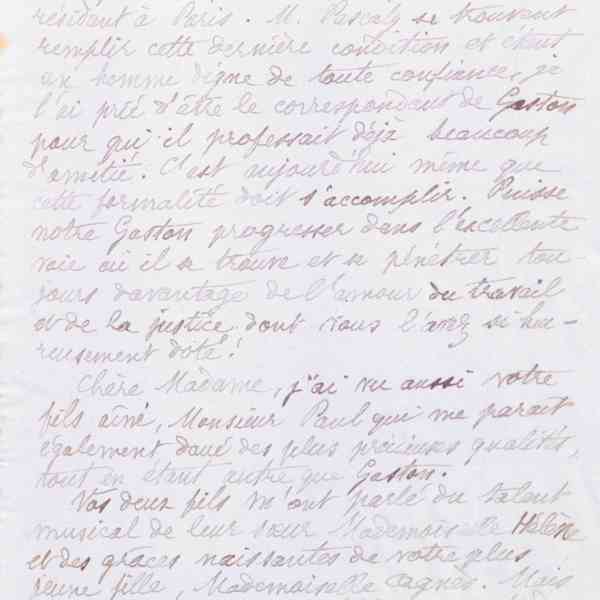 résidant à Paris. M. Pascaly se trouvant
remplir cette dernière condition et étant
un homme digne de toute confiance, je
l'ai prié d'être le correspondant de Gaston
pour qui il professait déjà beaucoup
d'amitié. C'est aujourd'hui même que
cette formalité doit s'accomplir. Puisse
notre Gaston progresser dans l'excellente
voie où il se trouve et se pénétrer tou-
jours davantage de l'amour du travail
et de la justice dont vous l'avez si heu-
reusement doté!
Chère Madame, j'ai vu aussi votre
fils aîné, Monsieur Paul qui me paraît
également doué des plus précieuses qualités,
tout en étant autre que Gaston.
Vos deux fils m'ont parlé du talent
musical de leur sœur Mademoiselle Hélène
et des grâces naissantes de votre plus
jeune fille, Mademoiselle Agnès. Mais